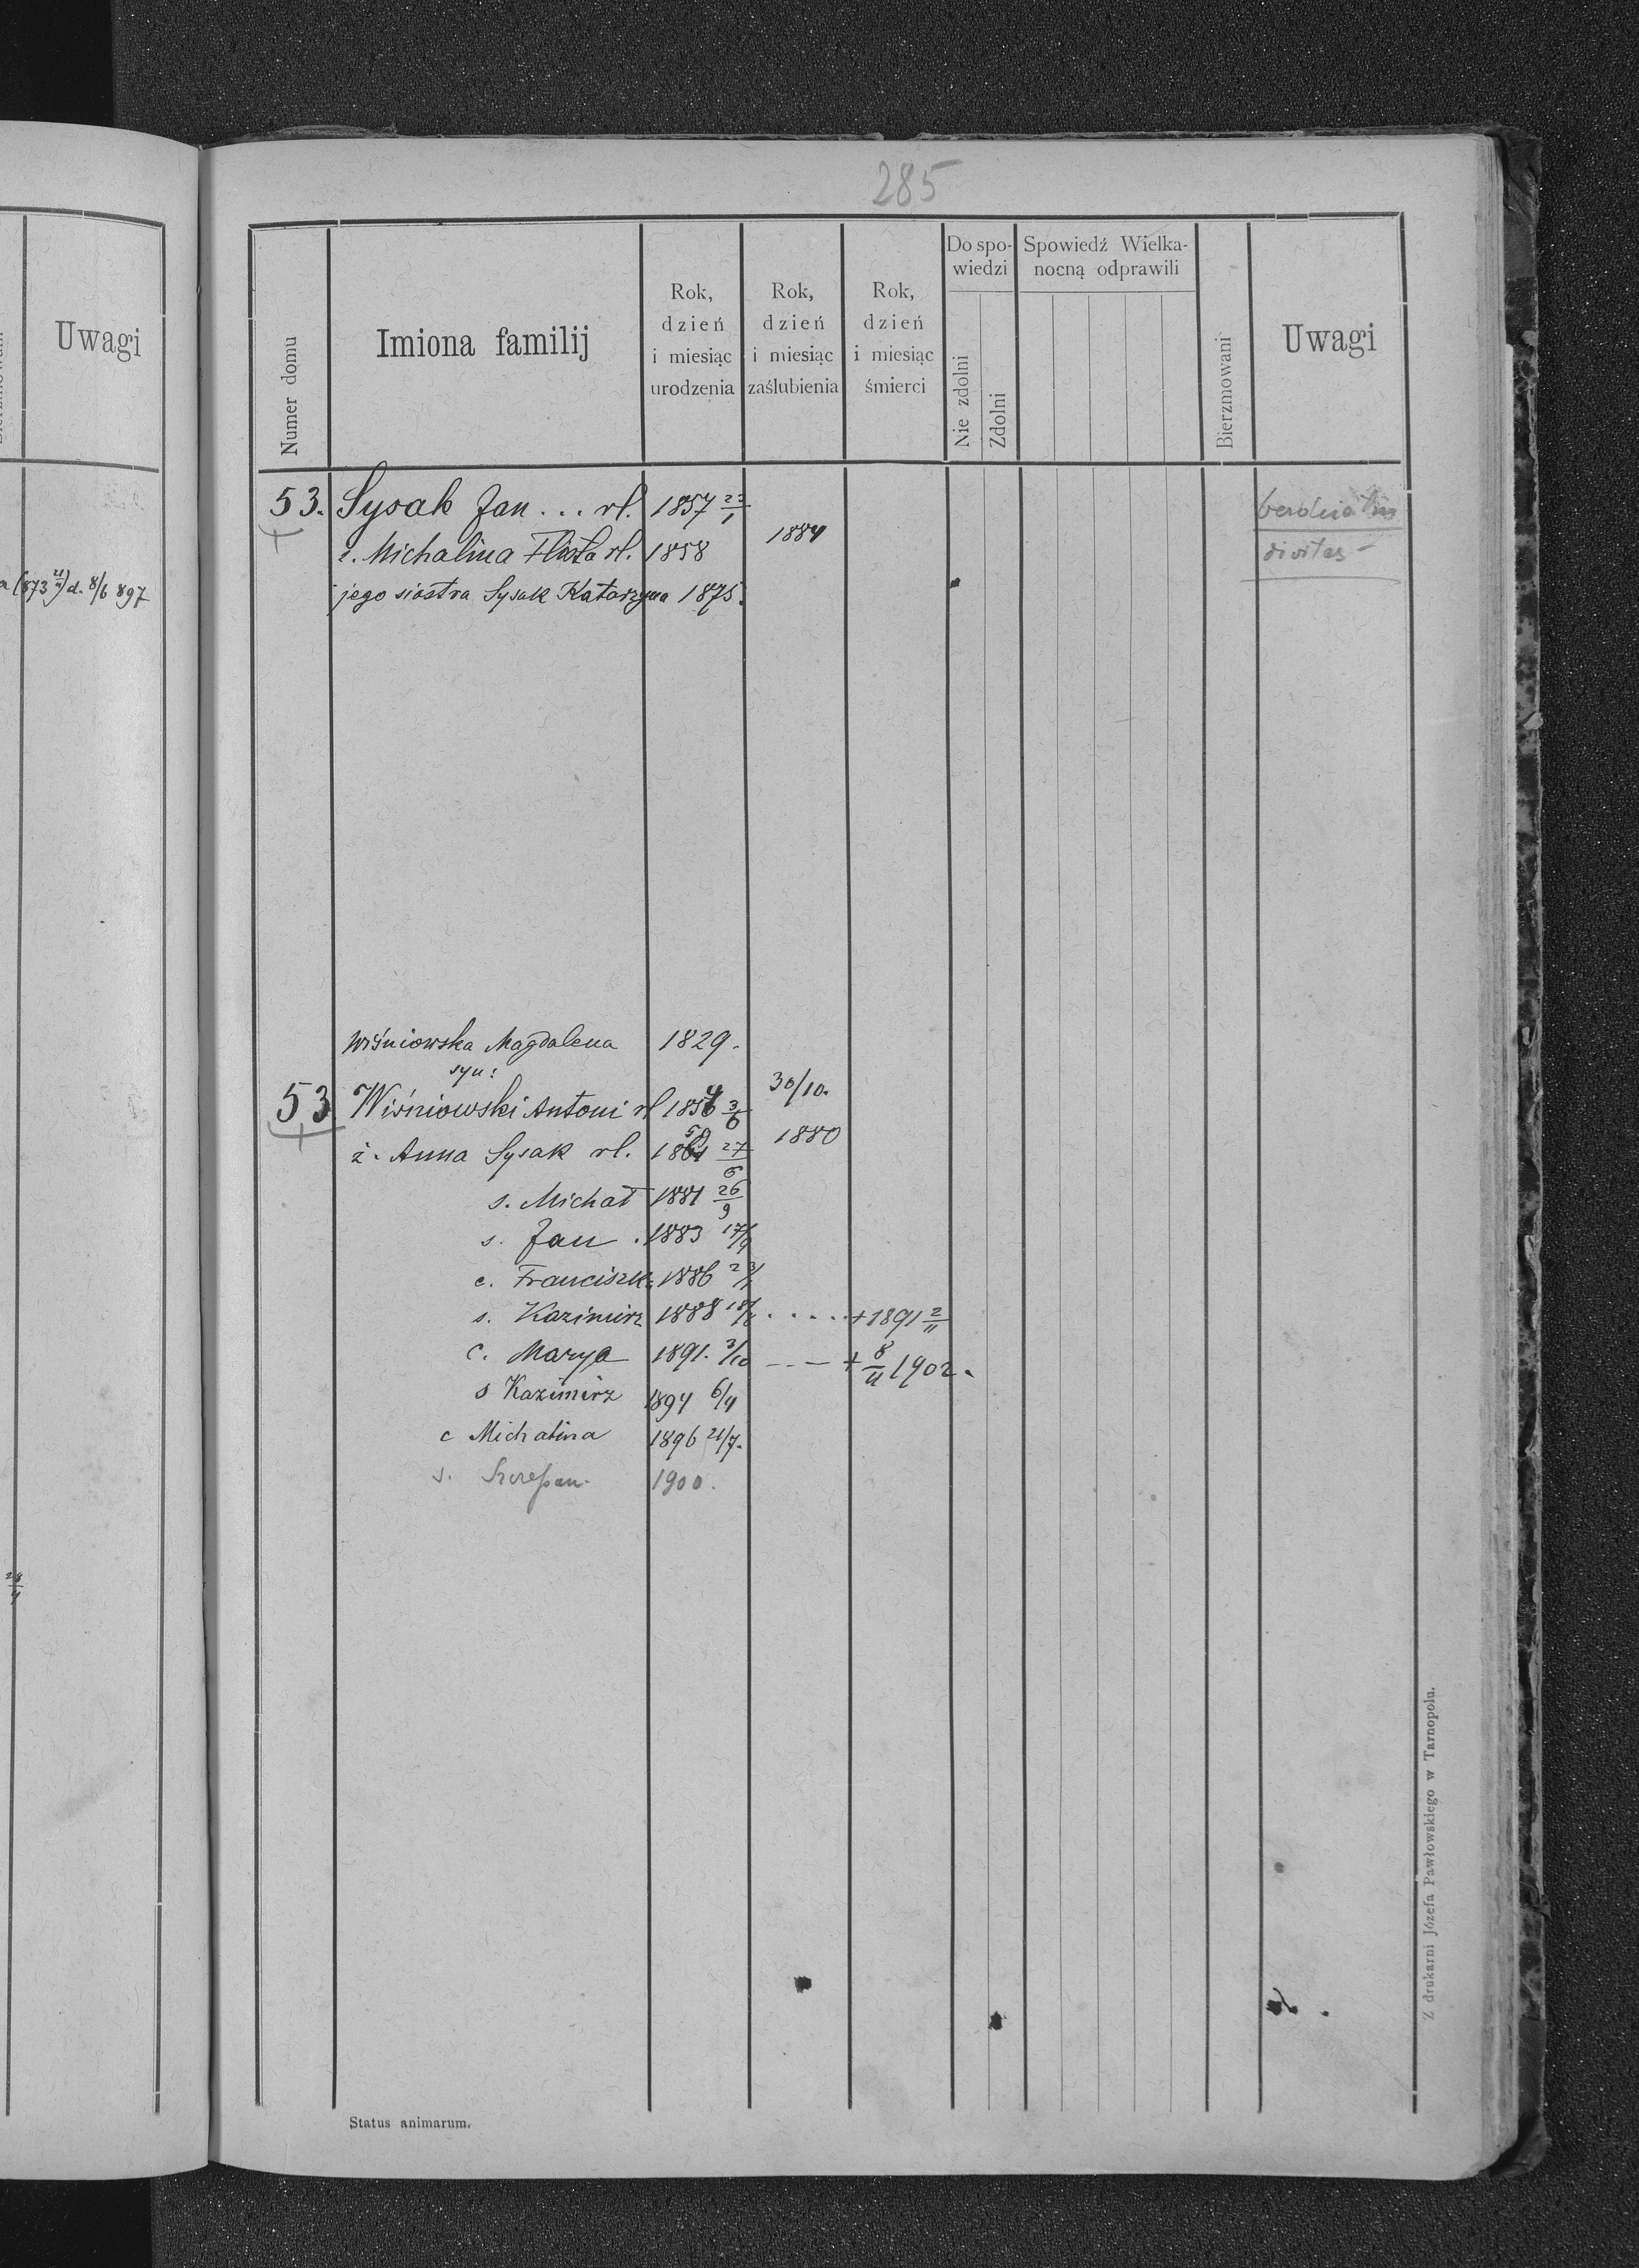 285
Uwagi
Numer domu
Imiona familij
Rok,
dzień
i miesiąc
urodzenia
Rok,
dzień
i miesiąc
zaślubienia
Rok,
dzień
i miesiąc
śmierci
Do spo-
wiedzi
Nie zdolni
Zdolni
Spowiedź Wielka-
nocną odprawili
Bierzmowani
Uwagi
(873 d. 8/6 897
53. Sysak Jan . . . rl. 1857 23/1
ż. Michalina rl. 1858 1884
jego siostra Sysak Katarzyna 1875.
divites -
Wiśniowska Magdalena 1829.
syn:
53 Wiśniowski Antoni rl 1854 3/6 30/10.
ż. Anna Sysak rl. 27/6 1880
s. Michał 1881 26/9
s. Jan . 1883 17/9
c. Franciszk. 1886 23/1
s. Kazimirz 1888 . . . . . +1891 2/11
c. Marya 1891. 3/10 - - - + 8/11 1902.
s Kazimirz 1894 6/4
c Michalina 1896 21/7.
s. Szczepan. 1900.
Status animarum.
Z drukarni Józefa Pawłowskiego w Tarnopolu.